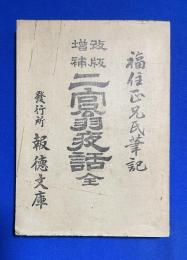 福住正兄氏筆記
改版
增補
二宮翁夜話 全
發行所 報德文庫